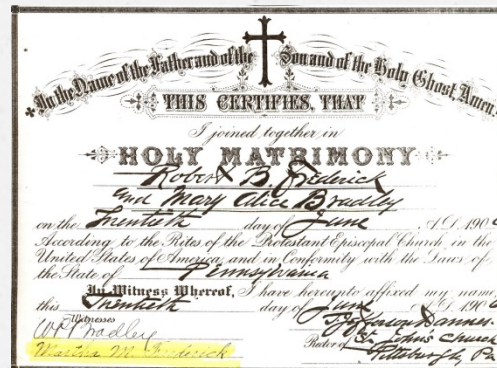 In the Name of the Father and of the Son and of the Holy Ghost, Amen.
THIS CERTIFIES, THAT
I joined together in
HOLY MATRIMONY
Robert B Frederick
and Mary Alice Bradley
on the Twentieth day of June A.D. 190
According to the Rites of the Protestant Episcopal Church in the
United States of America and in Conformity with the Laws of
the State of Pennsylvania
In Witness Whereof, I have hereunto affixed my name,
this Twentieth day of June A.D. 190
Witnesses
W P Bradley
Martha M Frederick
Jefferson Danner
Rector of St. Johns Church
Pittsburgh, Pa